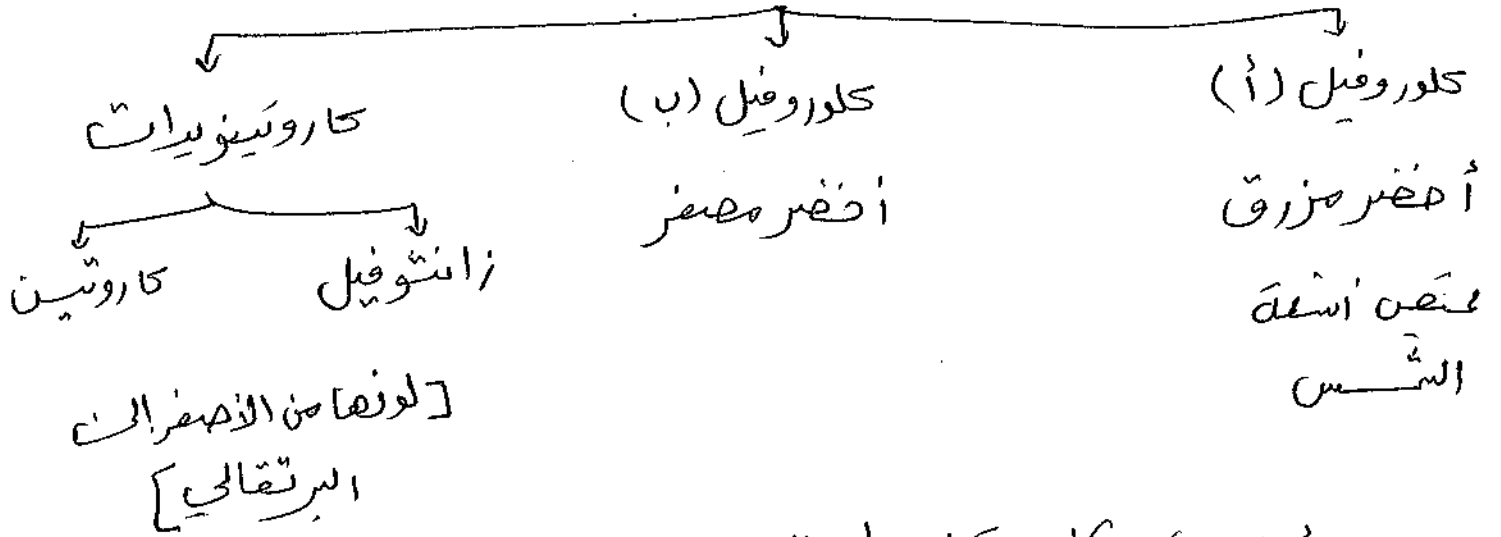 كلوروفيل (أ)
أخضر مزرق
يمتص أشعة
الشمس
كلوروفيل (ب)
أخضر مصفر
كاروتينويدات
زانثوفيل
كاروتين
[لونها من الأصفر إلى
البرتقالي]